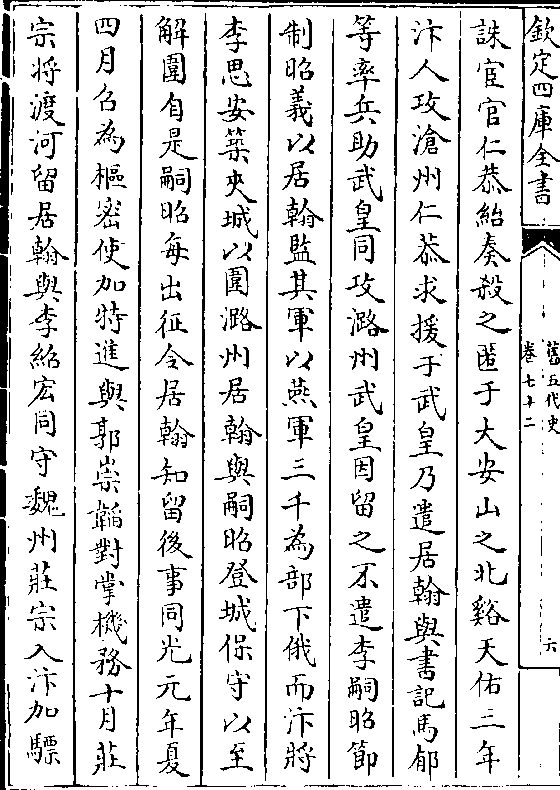 欽定四庫全書
舊五代史
卷七十二
六
誅宦官仁恭紿奏殺之匿于大安山之北谿天佑三年
汴人攻滄州仁恭求援于武皇乃遣居翰與書記馬郁
等率兵助武皇同攻潞州武皇因留之不遣李嗣昭節
制昭義以居翰監其軍以燕軍三千為部下俄而汴將
李思安築夾城以圍潞州居翰與嗣昭登城保守以至
解圍自是嗣昭每出征令居翰知留後事同光元年夏
四月召為樞密使加特進與郭崇韜對掌機務十月莊
宗將渡河留居翰與李紹宏同守魏州莊宗入汴加驃